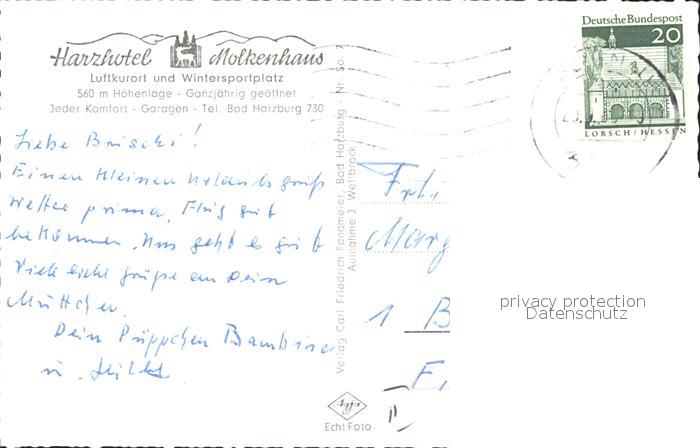 Harzhotel Molkenhaus
Luftkurort und Wintersportplatz
560 m Höhenlage - Ganzjährig geöffnet
Jeder Komfort - Garagen - Tel. Bad Harzburg 730
Deutsche Bundespost
20
LORSCH/HESSEN
Liebe Brüscki!
Einen kleinen Urlaubsgruß
Wetter prima, Flug gut
bekommen. Uns geht es gut
Viele liebe Grüße an Dein
Muttchen.
Dein Püppchen Bambina
u.
Verlag Carl Friedrich Fangmeier, Bad Harzburg - Nr. So. 7
Aufnahme J. Wellbrock
Frl.
Marg
1 B
privacy protection
Datenschutz
Agfa
Echt Foto